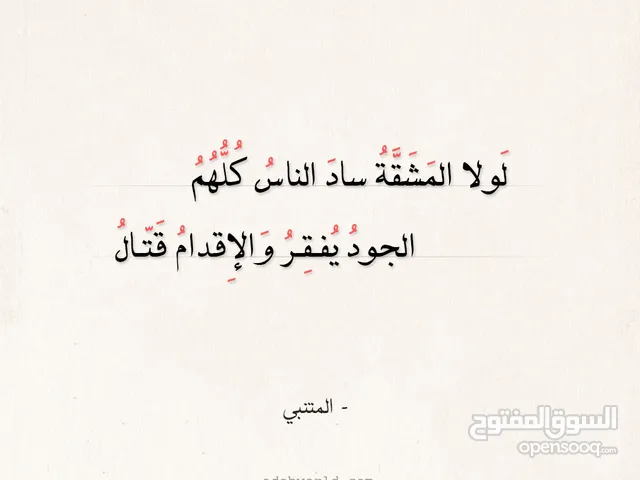 لَولا المَشَقَّةُ سادَ الناسُ كُلُّهُمُ
الجودُ يُفقِرُ وَالإِقدامُ قَتّالُ
- المتنبي
السوق المفتوح
opensooq.com